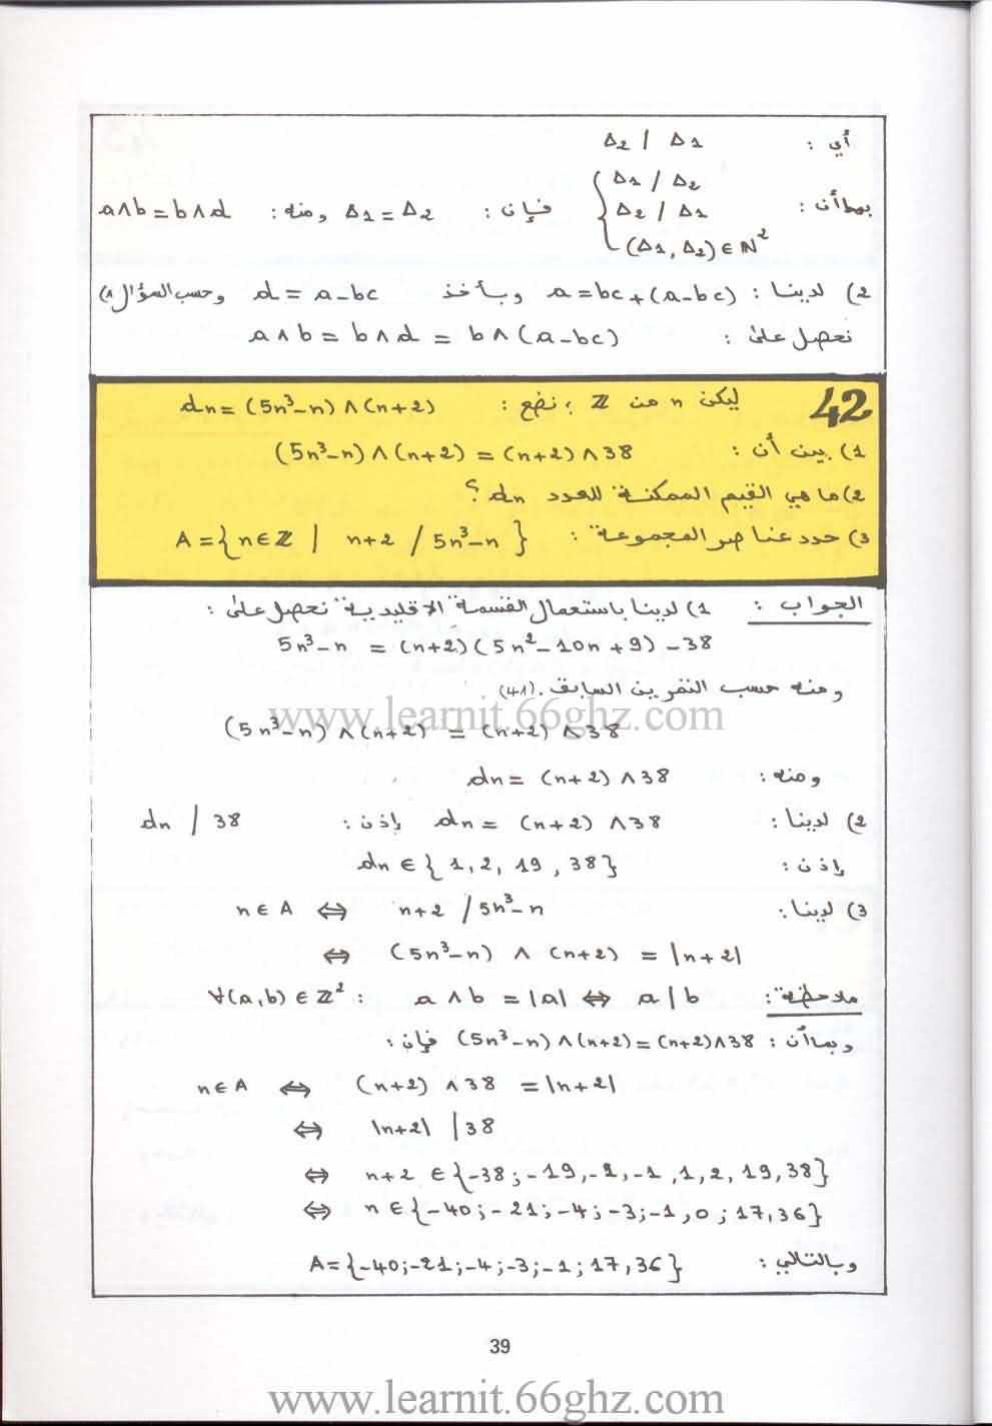 أي : Δ2 / Δ1
بما أن : { Δ1 / Δ2 ; Δ2 / Δ1 ; (Δ1, Δ2) ∈ ℕ² فإن : Δ1 = Δ2 ومنه : a∧b = b∧d
2) لدينا : a = bc + (a-bc) وبأخذ d = a-bc وحسب السؤال 1)
نحصل على : a∧b = b∧d = b∧(a-bc)
42 ليكن n من ℤ ؛ نضع : dn = (5n³-n) ∧ (n+2)
1) بين أن : (5n³-n) ∧ (n+2) = (n+2) ∧ 38
2) ما هي القيم الممكنة للعدد dn ؟
3) حدد عناصر المجموعة : A = {n∈ℤ | n+2 / 5n³-n }
الجواب : 1) لدينا باستعمال القسمة الاقليدية نحصل على :
5n³-n = (n+2)(5n²-10n+9) -38
ومنه حسب التمرين السابق .(41)
www.learnit.66ghz.com
(5n³-n) ∧ (n+2) = (n+2) ∧ 38
ومنه : dn = (n+2) ∧ 38
2) لدينا : dn = (n+2) ∧ 38 إذن : dn / 38
إذن : dn ∈ { 1, 2, 19, 38}
3) لدينا : n ∈ A ⇔ n+2 / 5n³-n
⇔ (5n³-n) ∧ (n+2) = |n+2|
ملاحظة : ∀(a,b) ∈ ℤ² : a ∧ b = |a| ⇔ a | b
وبما أن : (5n³-n) ∧ (n+2) = (n+2) ∧ 38 فإن :
n∈A ⇔ (n+2) ∧ 38 = |n+2|
⇔ |n+2| | 38
⇔ n+2 ∈ {-38;-19,-2,-1,1,2,19,38}
⇔ n ∈ {-40;-21;-4;-3;-1,0;17,36}
وبالتالي : A = {-40;-21;-4;-3;-1;17,36}
39
www.learnit.66ghz.com